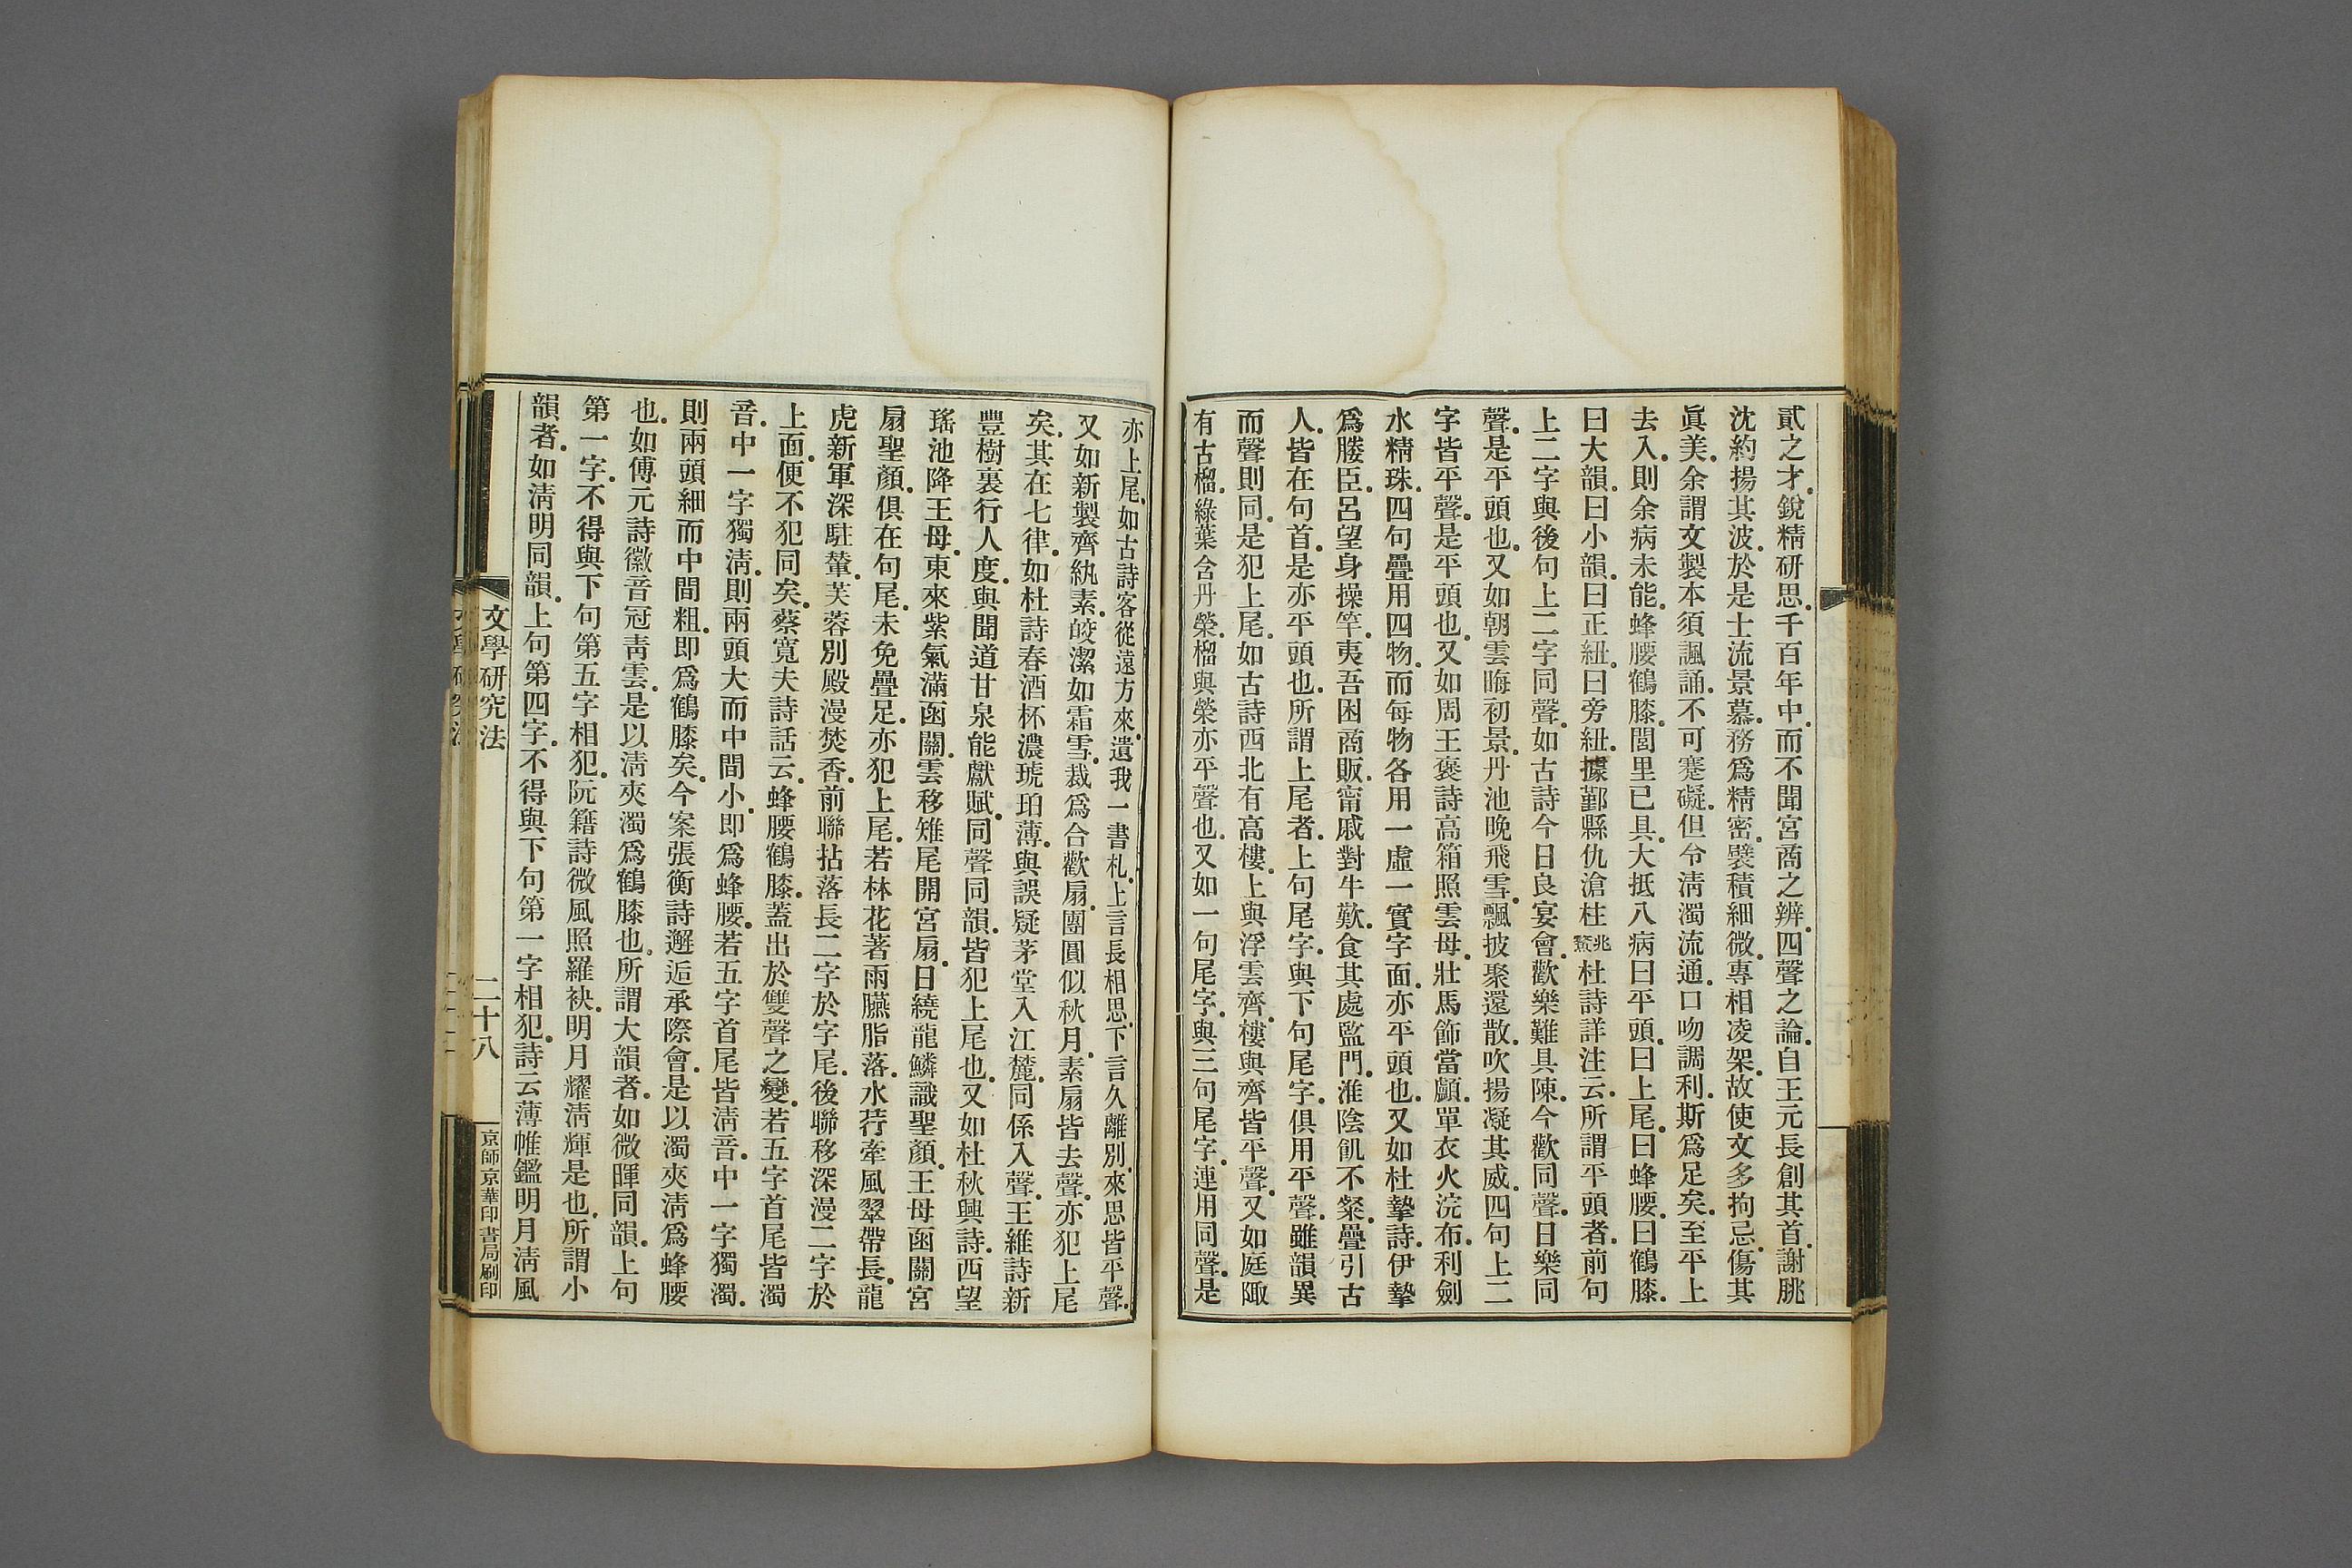 貳之才。銳精硏思。千百年中。而不聞宮商之辨。四聲之論。自王元長創其首。謝朓
沈約揚其波。於是士流景慕。務爲精密。襞積細微。專相凌架。故使文多拘忌。傷其
眞美。余謂文製本須諷誦。不可蹇礙。但令淸濁流通。口吻調利。斯爲足矣。至平上
去入。則余病未能。蜂腰鶴膝。閭里已具。大抵八病曰平頭。曰上尾。曰蜂腰。曰鶴膝。
曰大韻。曰小韻。曰正紐。曰旁紐。據鄞縣仇滄柱兆鰲杜詩詳注云。所謂平頭者。前句
上二字與後句上二字同聲。如古詩今日良宴會。歡樂難具陳。今歡同聲。日樂同
聲。是平頭也。又如朝雲晦初景。丹池晚飛雪。飄披聚還散。吹揚凝其威。四句上二
字皆平聲。是平頭也。又如周王褒詩高箱照雲母。壯馬飾當顱。單衣火浣布。利劍
水精珠。四句疊用四物。而每物各用一虛一實字面。亦平頭也。又如杜摯詩。伊摯
爲媵臣。呂望身操竿。夷吾困商販。甯戚對牛歎。食其處監門。淮陰飢不粲。疊引古
人。皆在句首。是亦平頭也。所謂上尾者。上句尾字。與下句尾字。俱用平聲。雖韻異
而聲則同。是犯上尾。如古詩西北有高樓。上與浮雲齊。樓與齊皆平聲。又如庭陬
有古榴。綠葉含丹榮。榴與榮亦平聲也。又如一句尾字。與三句尾字。連用同聲。是
亦上尾。如古詩客從遠方來。遺我一書札。上言長相思。下言久離別。來思皆平聲。
又如新製齊紈素。皎潔如霜雪。裁爲合歡扇。團圓似秋月。素扇皆去聲。亦犯上尾
矣。其在七律。如杜詩春酒杯濃琥珀薄。與誤疑茅堂入江麓。同係入聲。王維詩新
豐樹裏行人度。與聞道甘泉能獻賦。同聲同韻。皆犯上尾也。又如杜秋興詩。西望
瑤池降王母。東來紫氣滿函關。雲移雉尾開宮扇。日繞龍鱗識聖顏。王母函關宮
扇聖顏。俱在句尾。未免疊足。亦犯上尾。若林花著雨臙脂落。水荇牽風翠帶長。龍
虎新軍深駐輦。芙蓉別殿漫焚香。前聯拈落長二字於字尾。後聯移深漫二字於
上面。便不犯同矣。蔡寬夫詩話云。蜂腰鶴膝。蓋出於雙聲之變。若五字首尾皆濁
音。中一字獨淸。則兩頭大而中間小。卽爲蜂腰。若五字首尾皆淸音。中一字獨濁。
則兩頭細而中間粗。卽爲鶴膝矣。今案張衡詩邂逅承際會。是以濁夾淸爲蜂腰
也。如傅元詩徽音冠靑雲。是以淸夾濁爲鶴膝也。所謂大韻者。如微暉同韻。上句
第一字。不得與下句第五字相犯。阮籍詩微風照羅袂。明月耀淸輝是也。所謂小
韻者。如淸明同韻。上句第四字。不得與下句第一字相犯。詩云薄帷鑑明月淸風
文學研究法
二十八
京師京華印書局刷印